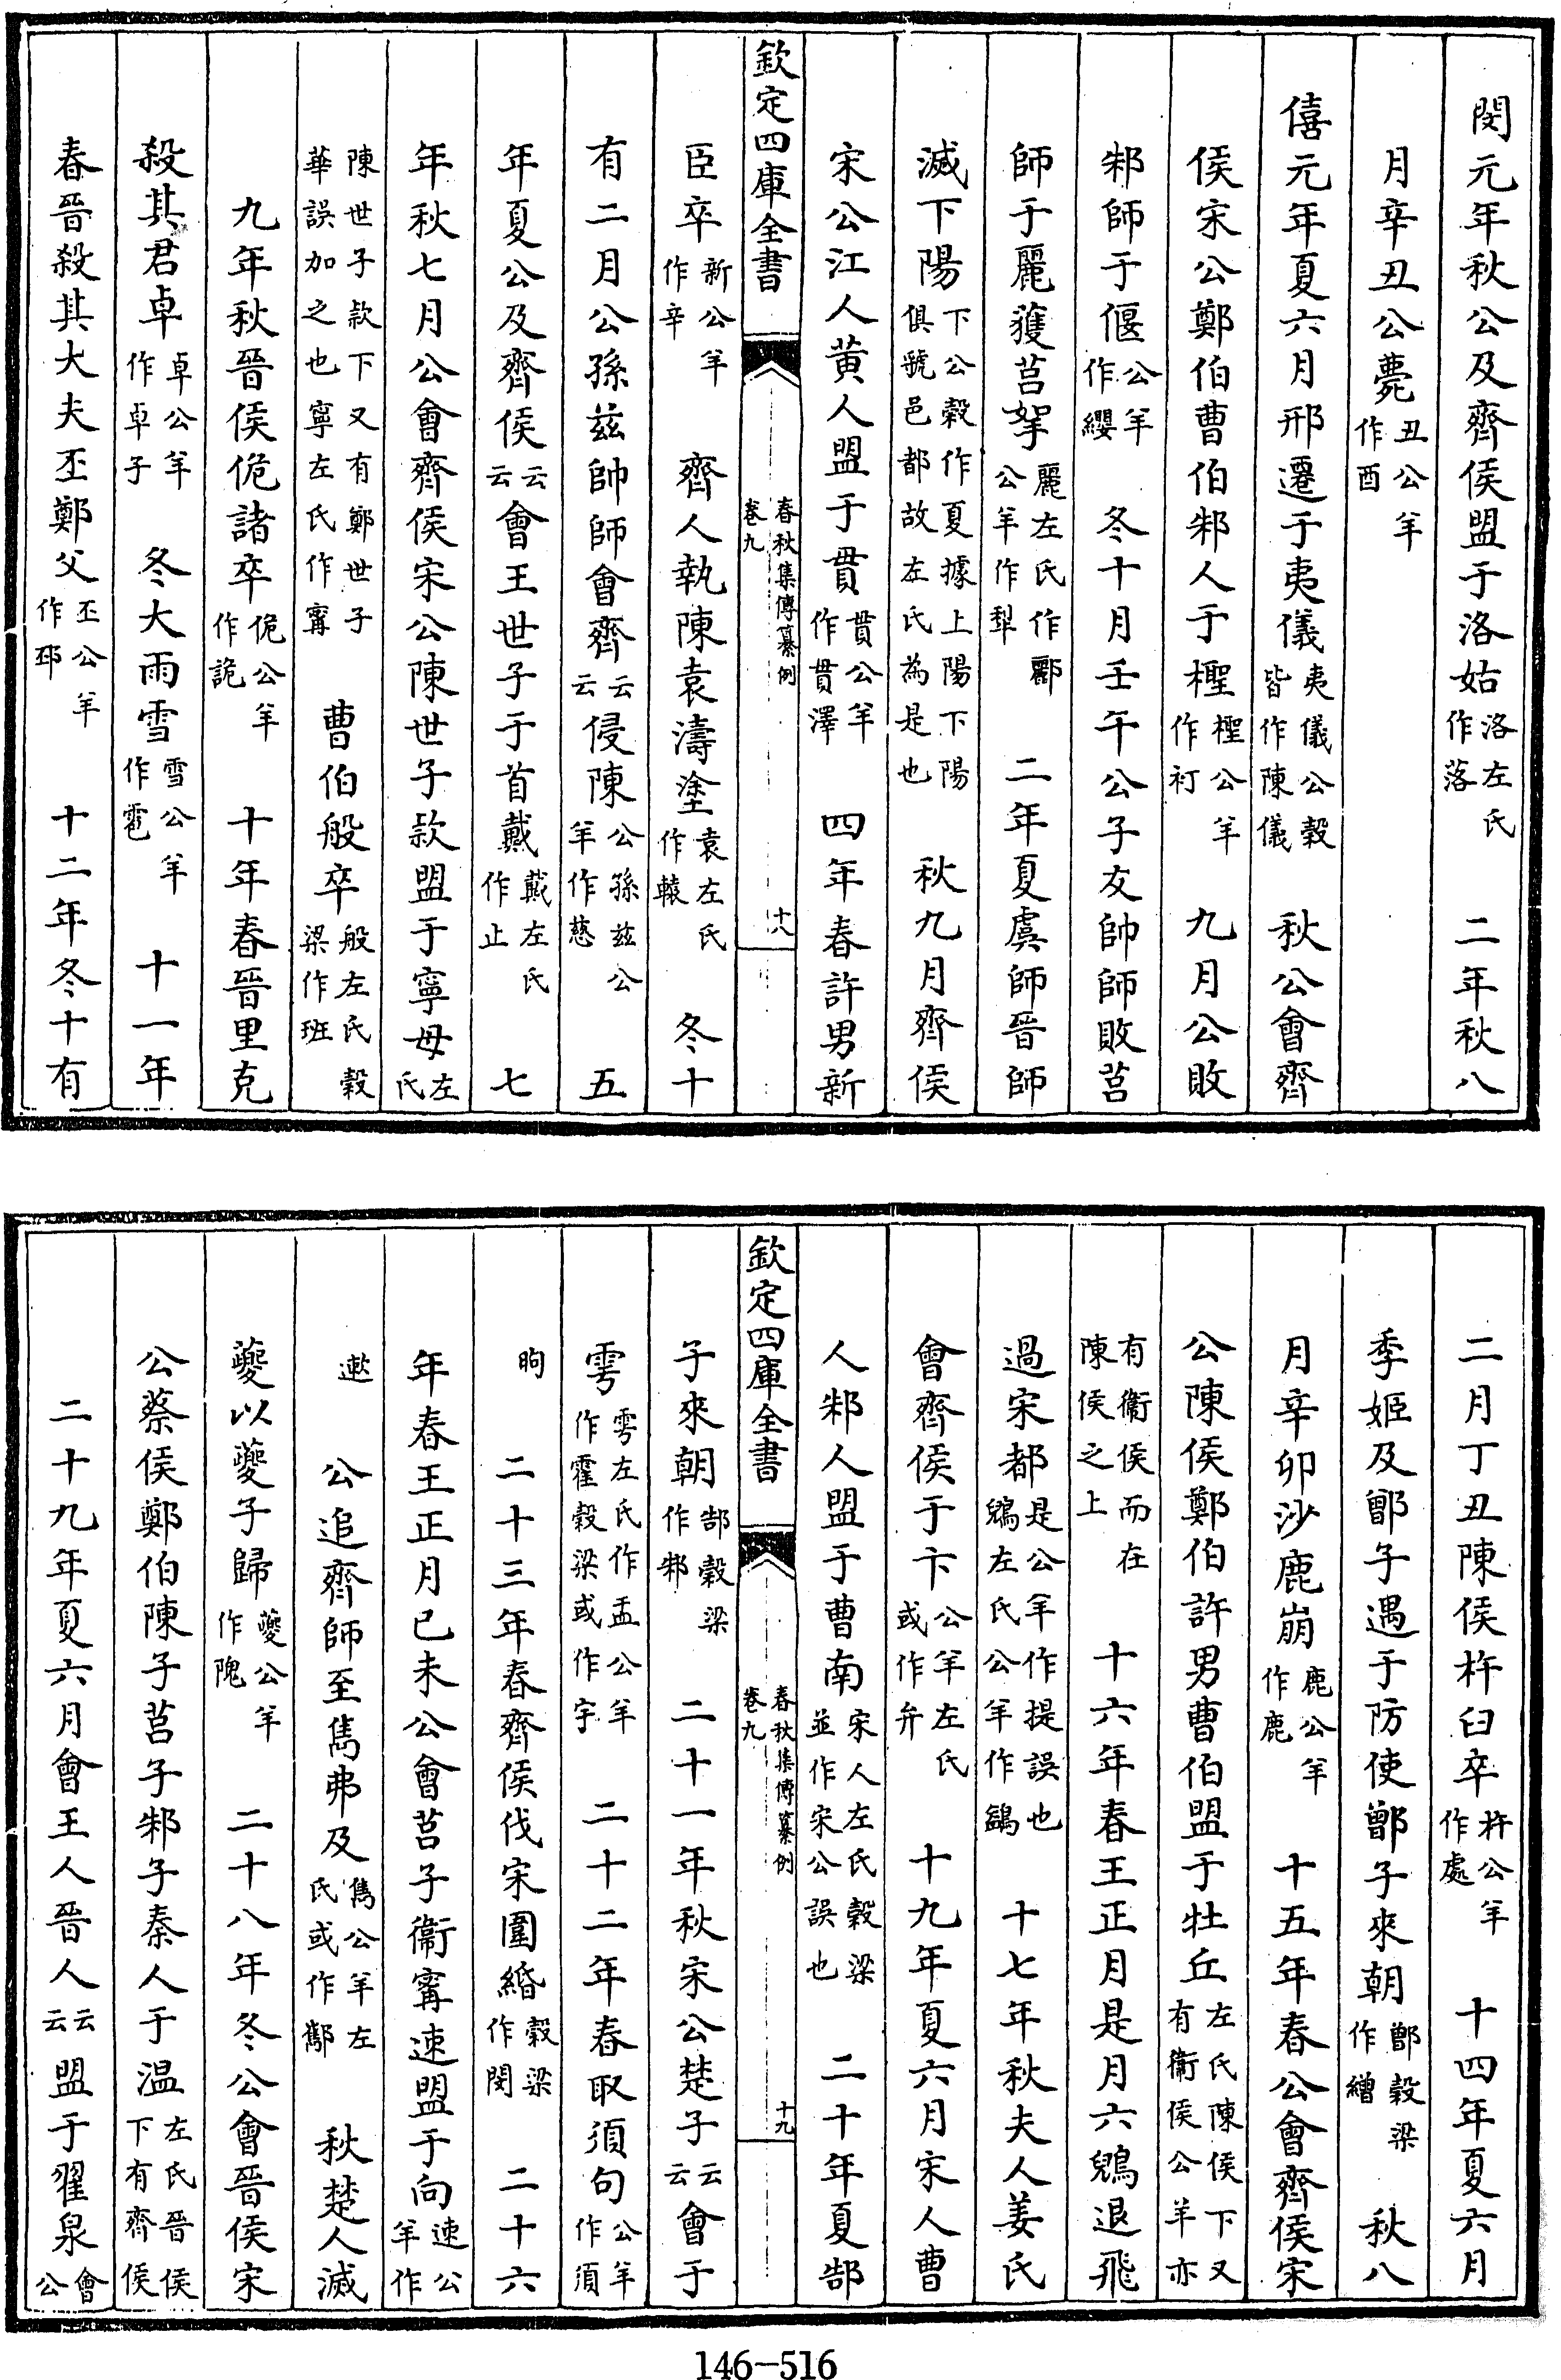 閔元年秋公及齊侯盟于洛姑洛左氏作落　二年秋八
月辛丑公薨丑公羊作酉
僖元年夏六月邢遷于夷儀夷儀公穀皆作陳儀　秋公會齊
侯宋公鄭伯曹伯邾人于檉檉公羊作朾　九月公敗
邾師于偃公羊作纓　冬十月壬午公子友帥師敗莒
師于麗獲莒挐麗左氏作酈公羊作犁　二年夏虞師晉師
滅下陽下公穀作夏據上陽下陽俱虢邑都故左氏為是也　秋九月齊侯
宋公江人黃人盟于貫貫公羊作貫澤　四年春許男新
欽定四庫全書　春秋集傳纂例卷九　十八
臣卒新公羊作辛　齊人執陳袁濤塗袁左氏作轅　冬十
有二月公孫茲帥師會齊云云侵陳公孫茲公羊作慈　五
年夏公及齊侯云云會王世子于首戴戴左氏作止　七
年秋七月公會齊侯宋公陳世子款盟于寧母左氏
陳世子款下又有鄭世子華誤加之也寧左氏作甯　曹伯般卒般左氏穀梁作班
九年秋晉侯佹諸卒佹公羊作詭　十年春晉里克
殺其君卓卓公羊作卓子　冬大雨雪雪公羊作雹　十一年
春晉殺其大夫丕鄭父丕公羊作邳　十二年冬十有
二月丁丑陳侯杵臼卒杵公羊作處　十四年夏六月
季姬及鄫子遇于防使鄫子來朝鄫穀梁作繒　秋八
月辛卯沙鹿崩鹿公羊作鹿　十五年春公會齊侯宋
公陳侯鄭伯許男曹伯盟于牡丘左氏陳侯下又有衞侯公羊亦
有衞侯而在陳侯之上　十六年春王正月是月六鶂退飛
過宋都是公羊作提誤也鶂左氏公羊作鷁　十七年秋夫人姜氏
會齊侯于卞公羊左氏或作弁　十九年夏六月宋人曹
人邾人盟于曹南宋人左氏穀梁並作宋公誤也　二十年夏郜
欽定四庫全書　春秋集傳纂例卷九　十九
子來朝郜穀梁作邾　二十一年秋宋公楚子云云會于
雩雩左氏作盂公羊作霍穀梁或作宇　二十二年春取須句公羊作須
朐　二十三年春齊侯伐宋圍緡穀梁作閔　二十六
年春王正月已未公會莒子衞甯速盟于向速公羊作
遬　公追齊師至雋弗及雋公羊左氏或作酅　秋楚人滅
夔以夔子歸夔公羊作隗　二十八年冬公會晉侯宋
公蔡侯鄭伯陳子莒子邾子秦人于温左氏晉侯下有齊侯
二十九年夏六月會王人晉人云云盟于翟泉會公
146-516